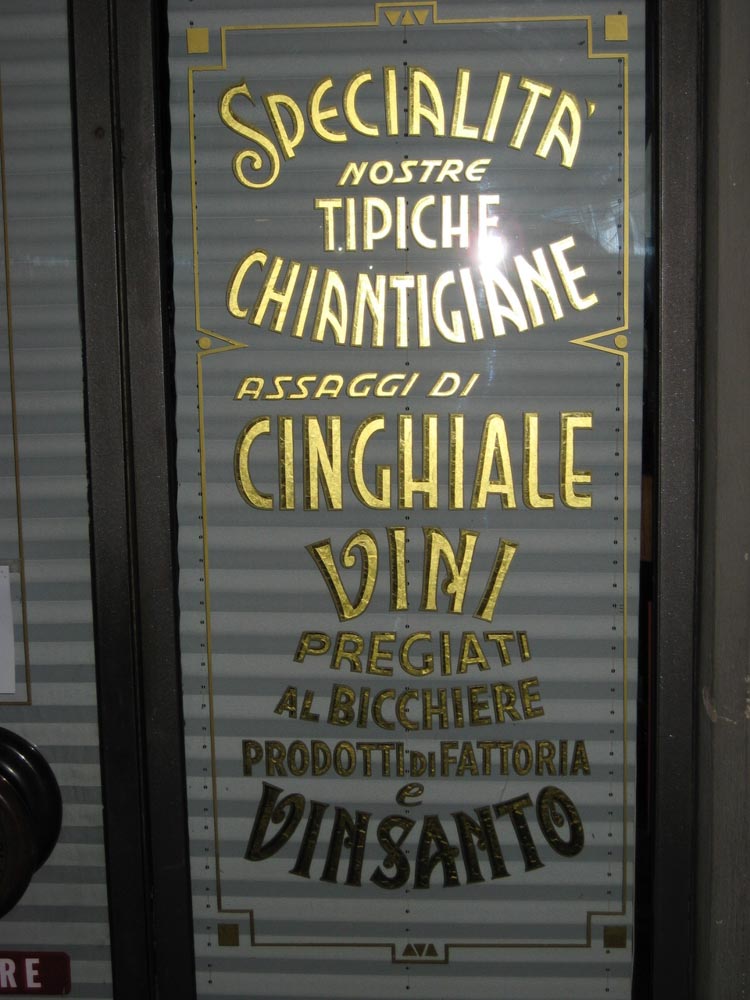 SPECIALITA'
NOSTRE
TIPICHE
CHIANTIGIANE
ASSAGGI DI
CINGHIALE
VINI
PREGIATI
AL BICCHIERE
PRODOTTI DI FATTORIA
e
VINSANTO
RE